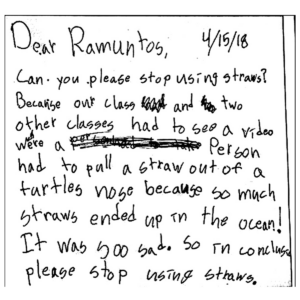 Dear Ramuntos, 4/15/18
Can. you please stop using straws?
Because our class and two
other classes had to see a video
were a Person
had to pull a straw out of a
turtles nose because so much
straws ended up in the ocean!
It was soo sad. So in conclusi
please stop using straws.